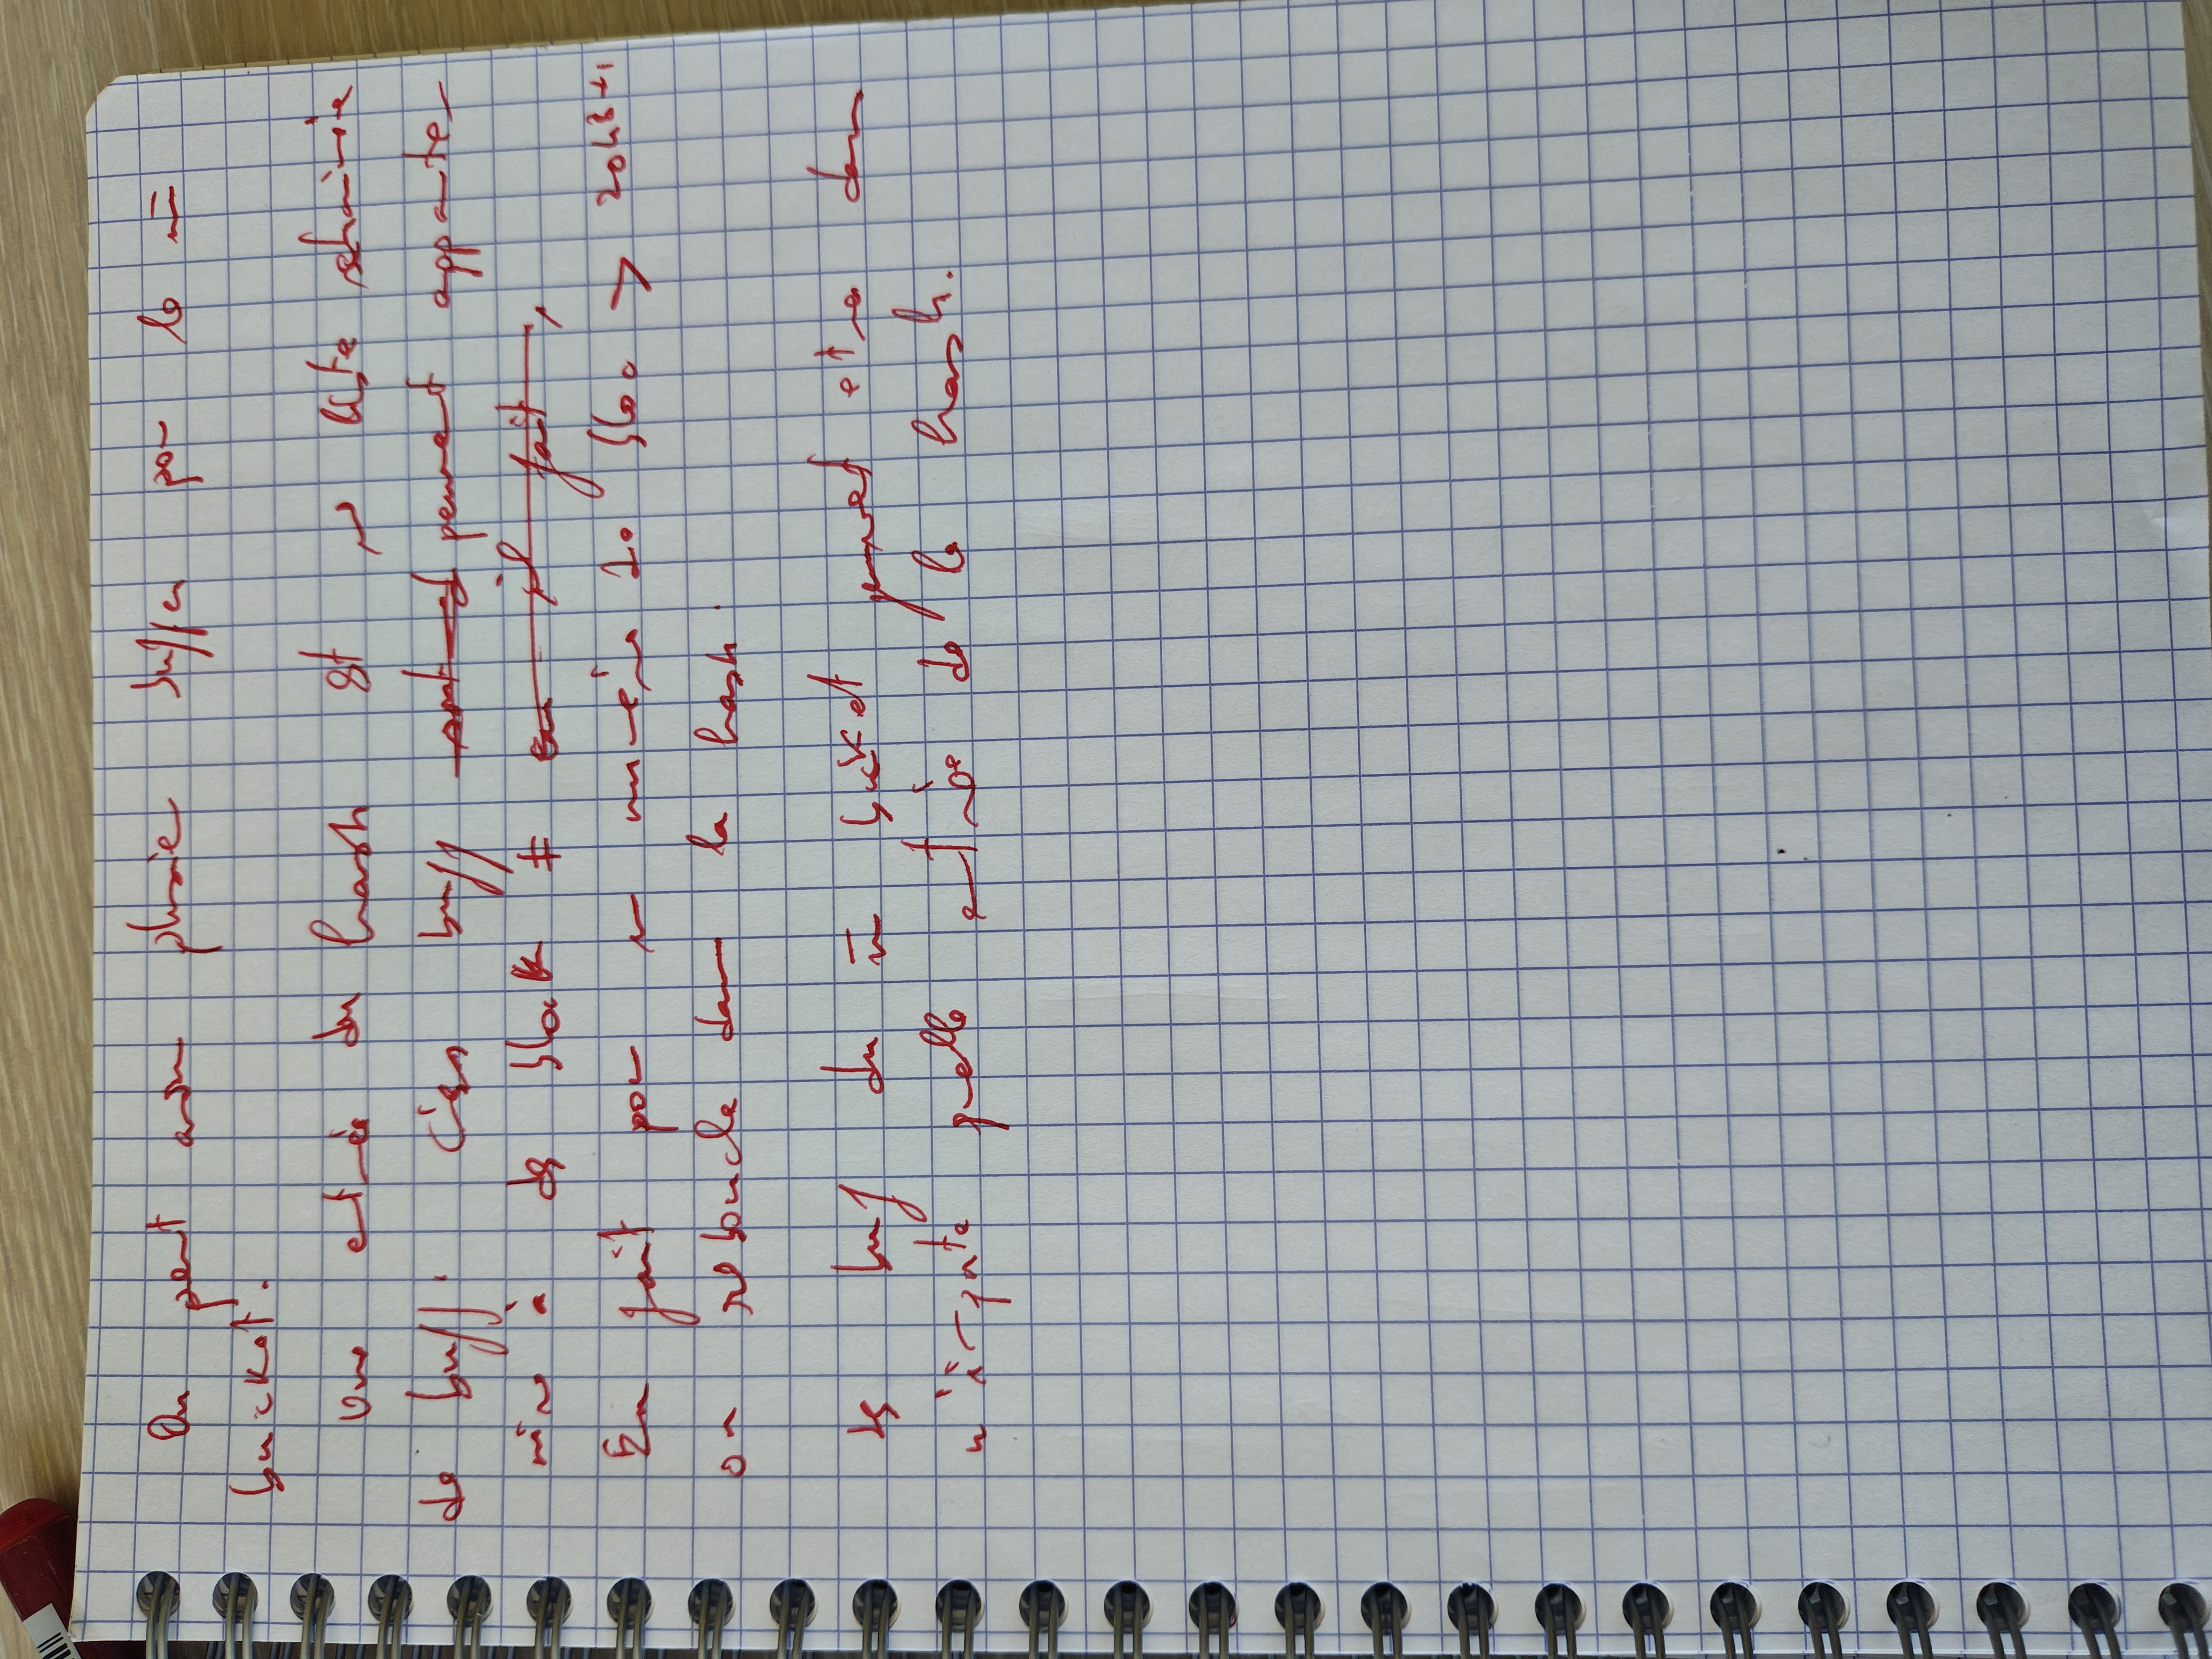 On peut avoir plusieurs buffer pour le m̄
bucket.
Une entrée du hash est un liste chainée
de buff. Ces buff peuvent apparte-
nir à des block ≠
En fait pour un numéro de bloc > 2048+1
on reboucle dans la hash.
Les buf du m̄ bucket peuvent etre dans
n'importe quelle entrée de la hash.